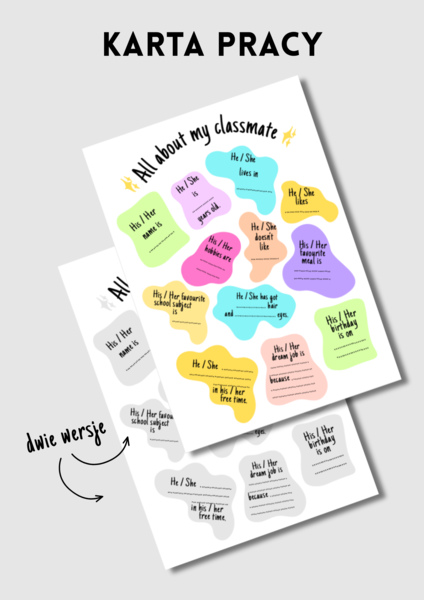 KARTA PRACY
All about my classmate
He / She
lives in
He / She
is
years old.
He / She
likes
His / Her
name is
He / She
doesn't
like
His / Her
hobbies are
His / Her
favourite
meal is
His / Her favourite
school subject
is
He / She has got
hair
and
eyes.
His / Her
birthday
is on
He / She
in his / her
free time.
His / Her
dream job is
because
All
His / Her
name is
His / Her favou
school subject
is
eyes.
His / Her
birthday
is on
dwie wersje
He / She
in his / her
free time.
His / Her
dream job is
because